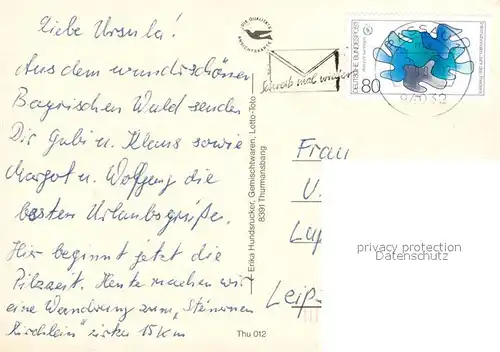 Liebe Ursula!
Aus dem wunderschönen
Bayrischen Wald senden
Dir Gabi u. Klaus sowie
Margot u. Wolfgang die
besten Urlaubsgrüße.
Hier beginnt jetzt die
Pilzzeit. Heute machen wir
eine Wanderung zum "Steinernen
Kirchlein" zirka 15 Km
DIE QUALITÄTS
ANSICHTSKARTE
Erika Hundsrucker, Gemischtwaren, Lotto-Toto
8391 Thurmansbang
Thu 012
Schreib mal wieder
DEUTSCHE BUNDESPOST
80
Frau
U.
Leip
privacy protection
Datenschutz